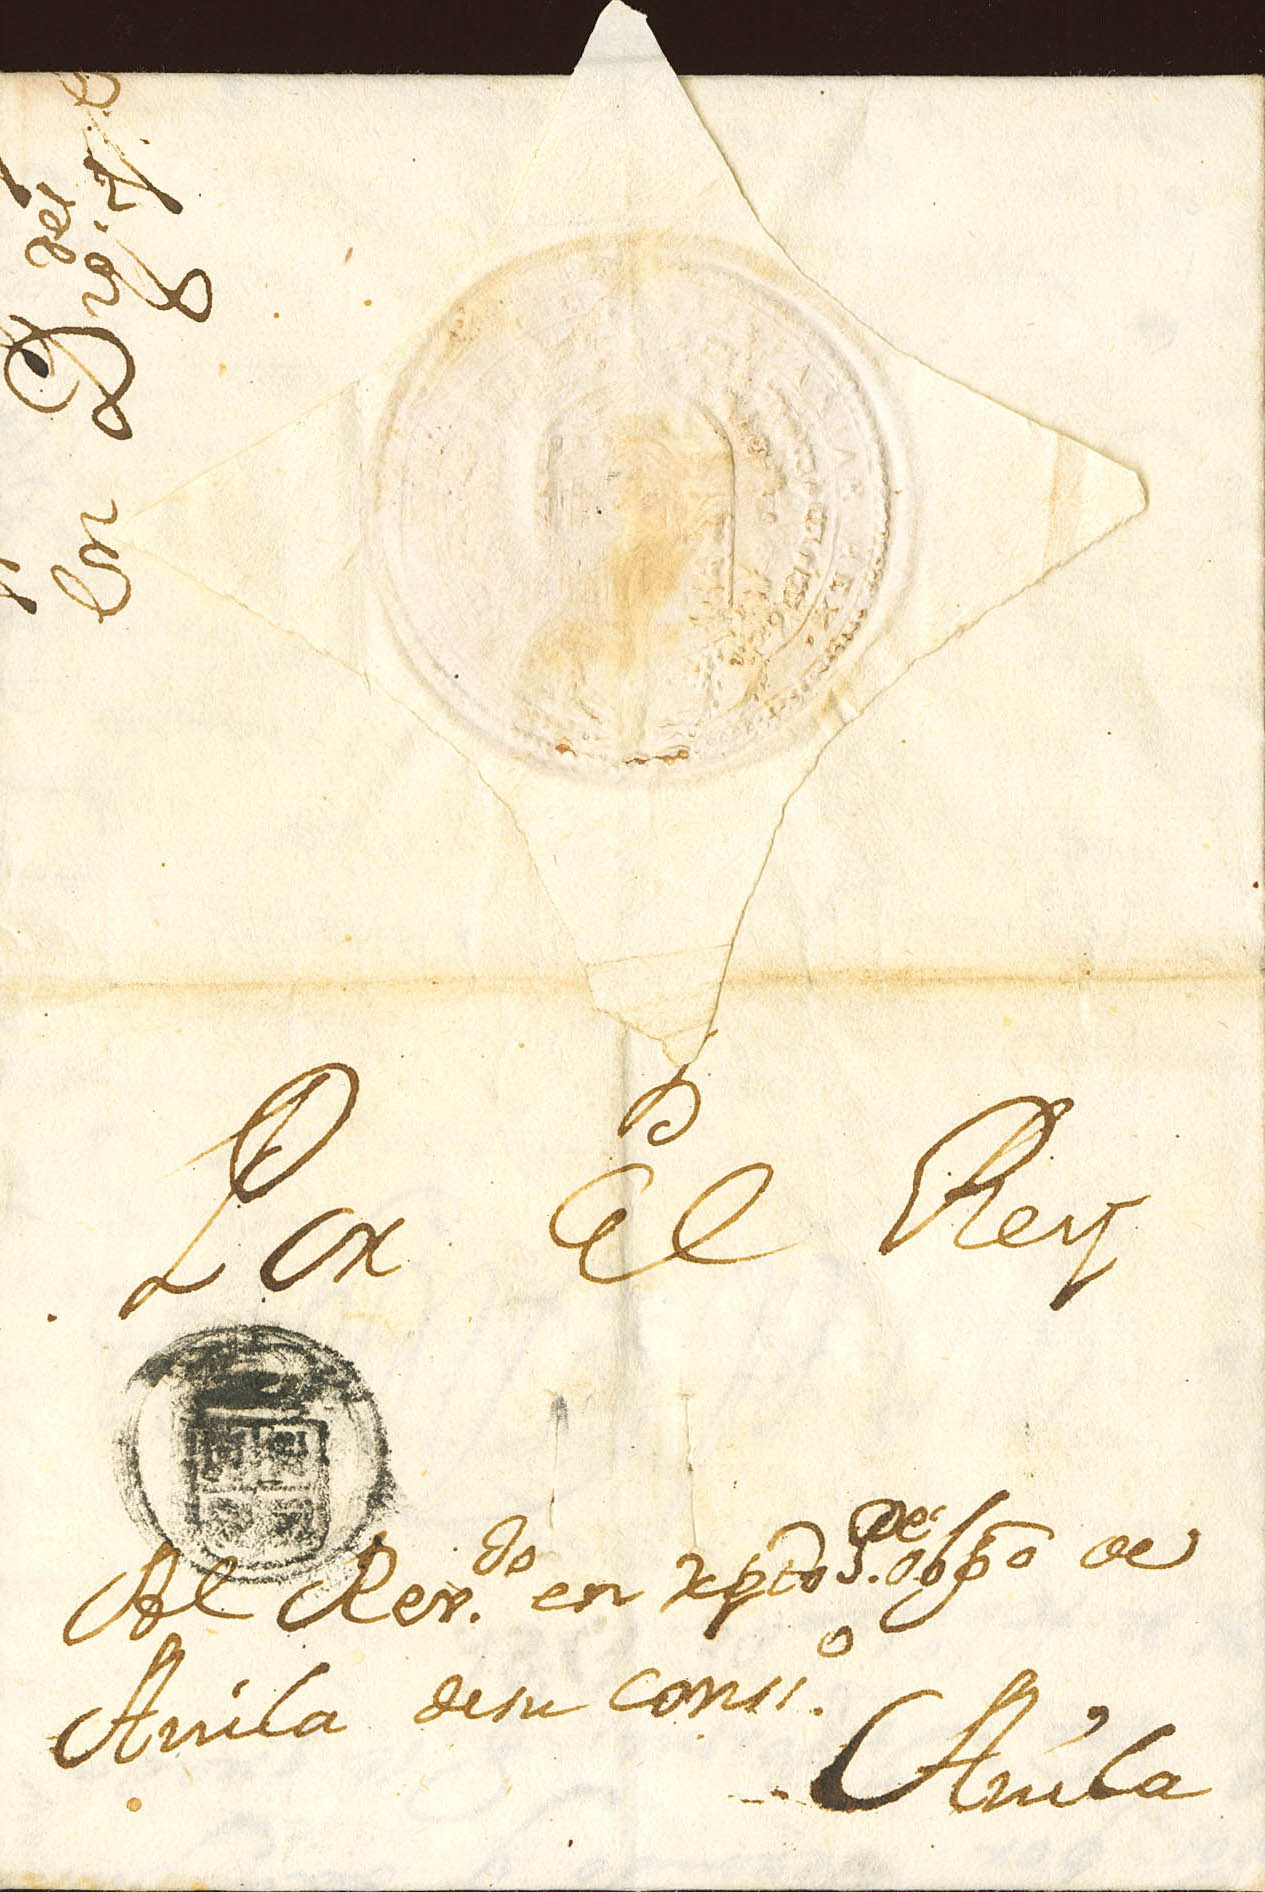 Por El Rey
Al Rev.do en xpto P.e obpo de
Auila desu conss.o
Auila
En